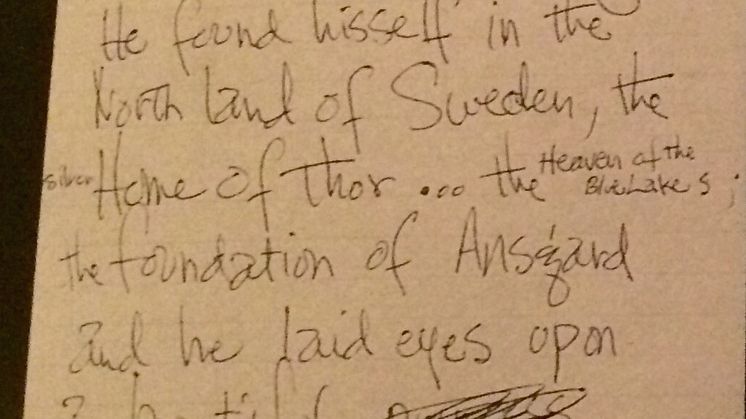 He found hisself in the
North land of Sweden, the
silver Home of Thor ... the Heaven of the
Blue Lakes ;
the foundation of Ansgard
and he laid eyes upon
a